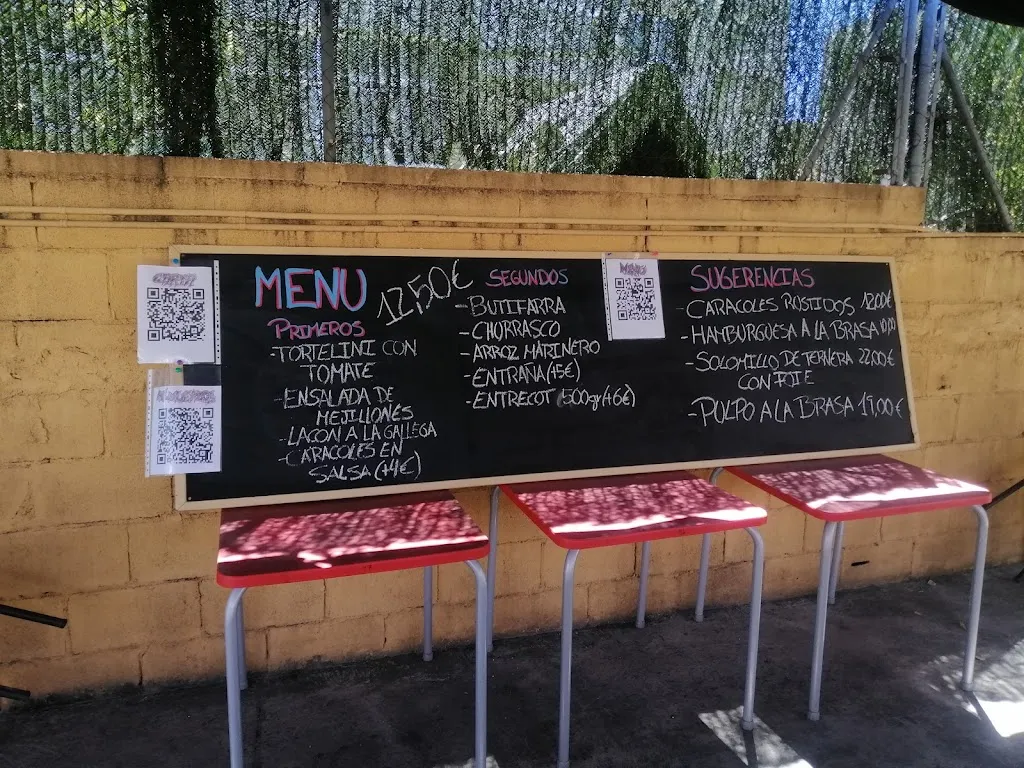 MENU 12,50€
PRIMEROS
-TORTELINI CON
TOMATE
-ENSALADA DE
MEJILLONES
-LACON A LA GALLEGA
-CARACOLES EN
SALSA (+4€)
SEGUNDOS
-BUTIFARRA
-CHORRASCO
-ARROZ MARINERO
-ENTRAÑA (+5€)
-ENTRECOT (500gr +6€)
MENU
SUGERENCIAS
-CARACOLES ROSTIDOS 12,00€
-HAMBURGUESA A LA BRASA 10,00
-SOLOMILLO DE TERNERA 22,00€
CON FOIE
-PULPO A LA BRASA 19,00€